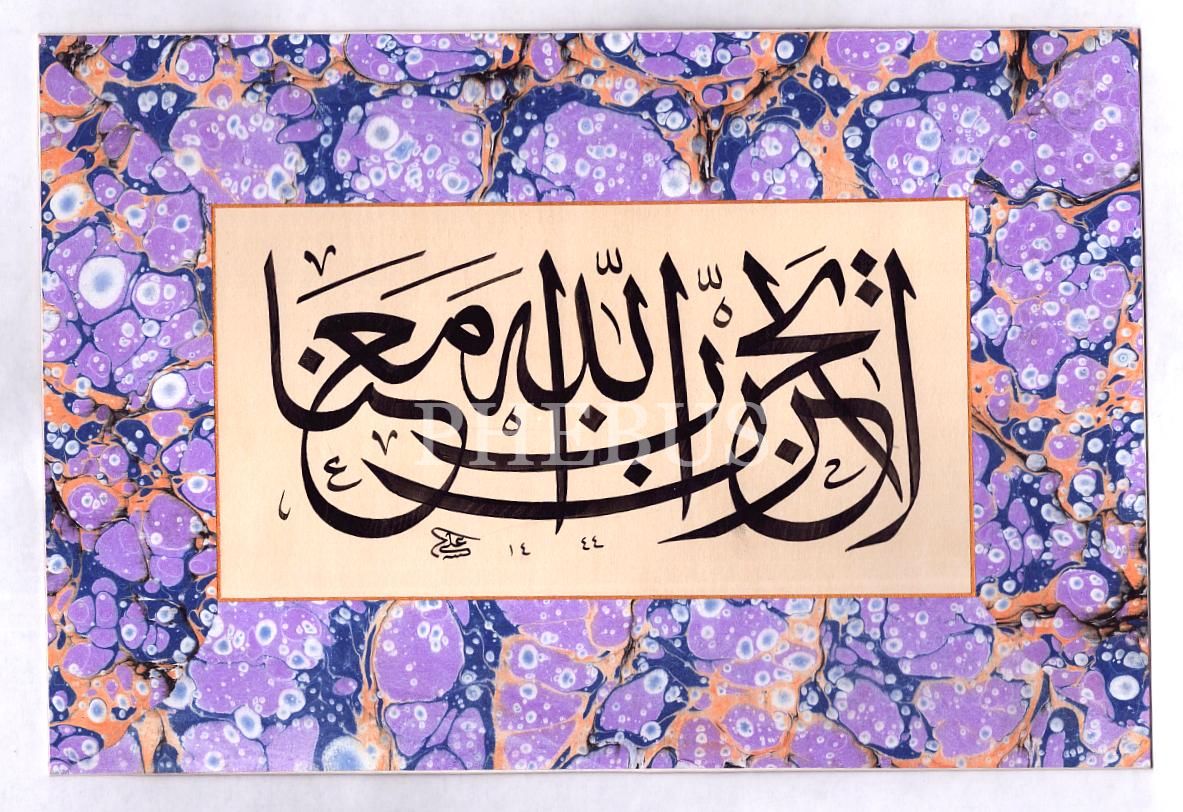 لا تحزن إن الله معنا
علي
١٤ ٤٤
PHEBUS